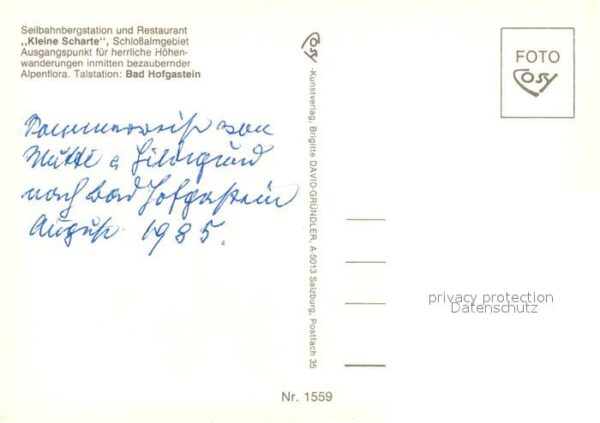 Seilbahnbergstation und Restaurant
„Kleine Scharte", Schloßalmgebiet
Ausgangspunkt für herrliche Höhen-
wanderungen inmitten bezaubernder
Alpenflora. Talstation: Bad Hofgastein
von
Mutti
nach bad Hofgastein
August 1985.
cosy
-Kunstverlag, Brigitte DAVID-GRÜNDLER, A-5013 Salzburg, Postfach 35
FOTO
cosy
privacy protection
Datenschutz
Nr. 1559